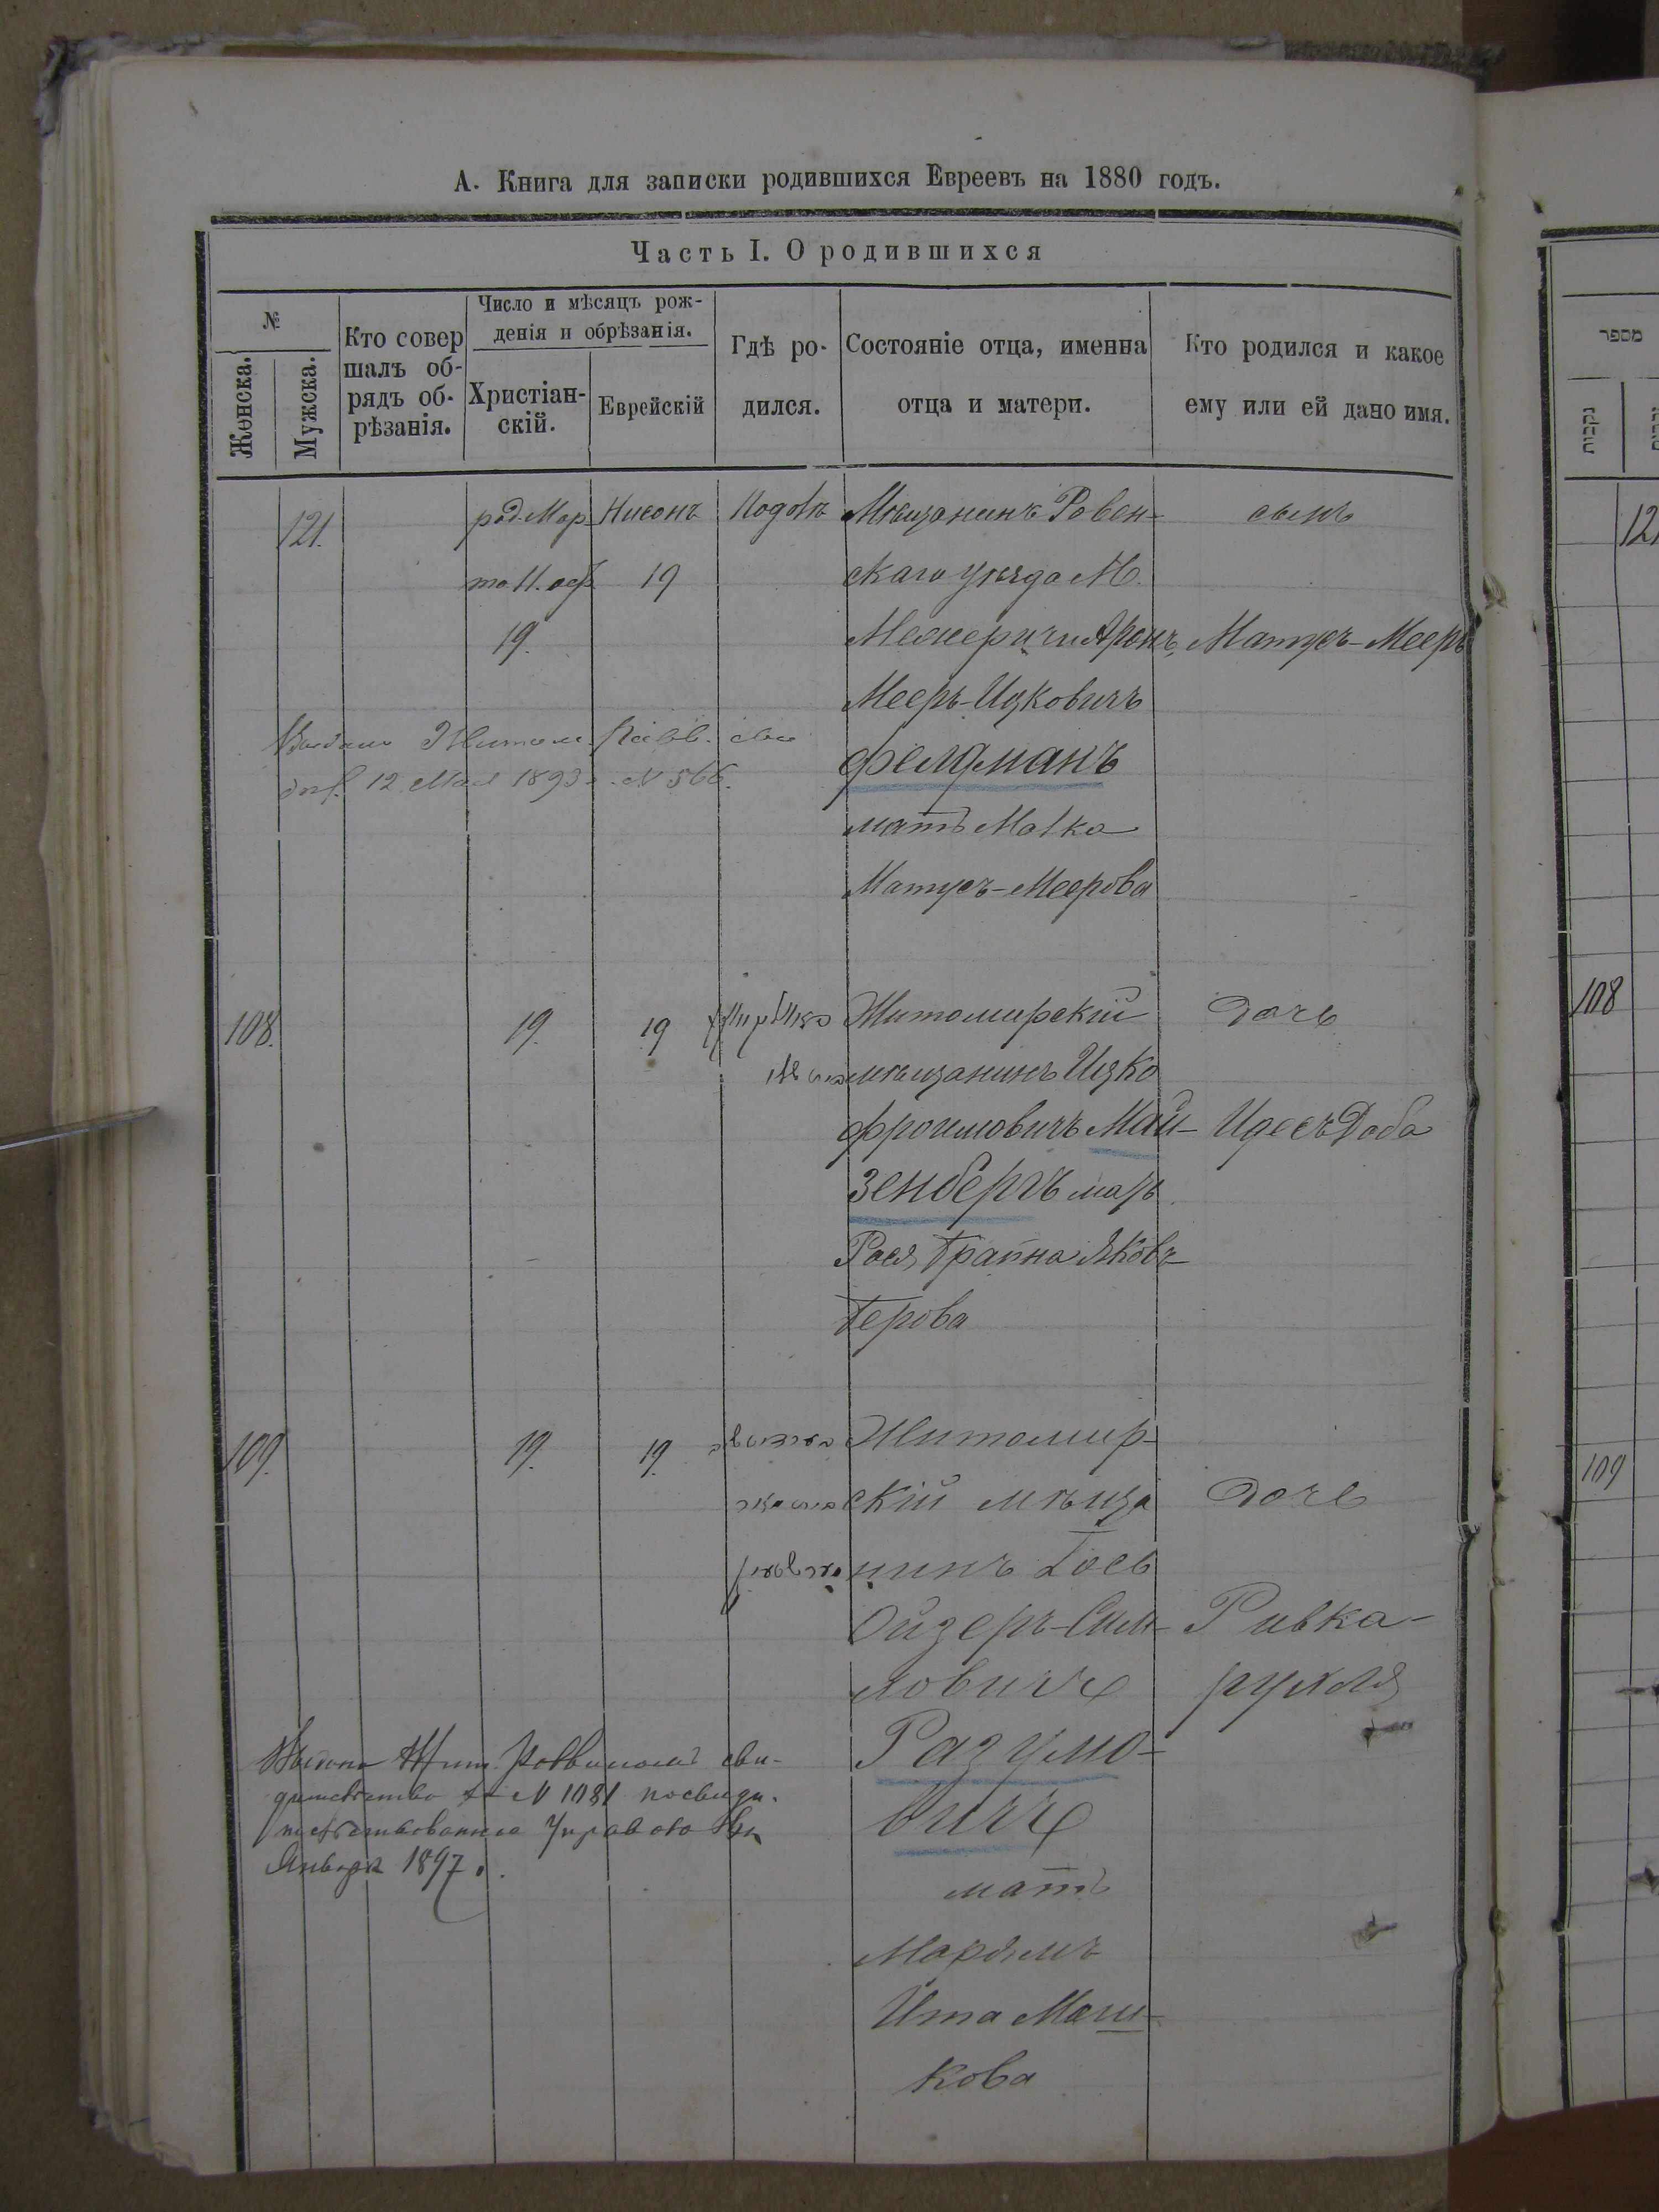 А. Книга для записки родившихся Евреевъ на 1880 годъ.
Часть I. О родившихся
№
Женска.
Мужска.
Кто совер
шалъ об-
рядъ об-
рѣзанія.
Число и мѣсяцъ рож-
денія и обрѣзанія.
Христіан-
скій.
Еврейскій
Гдѣ ро-
дился.
Состояніе отца, именна
отца и матери.
Кто родился и какое
ему или ей дано имя.
121.
род. Мар
та 11. обр
19.
Нисонъ
19
Мѣщанинъ Ровен-
скаго уѣзда М.
Межеричи Аронъ
Мееръ-Ицковичъ
Фелдманъ
мать Malka
Матусъ-Меерова
сынъ
Матусъ-Мееръ
12 Мая 1893 г. № 566.
108.
19.
19
Житомирскій
мѣщанинъ Ицко
Фроимовичъ Май-
зенбергъ мать
Рася Брайна Яковъ-
Берова
дочь
Идесъ Доба
109.
19.
19.
Житомир-
скій мѣща
нинъ Іось
Ойзеръ-Сим-
ловичъ
Разумо-
вичъ
мать
Марьямъ
Ита Мош-
кова
дочь
Ривка-
рухля
Выдано Жит. Раввиномъ сви-
дительство № 1081
Управою
Января 1897 г.
מספר
נקבות
121
108
109